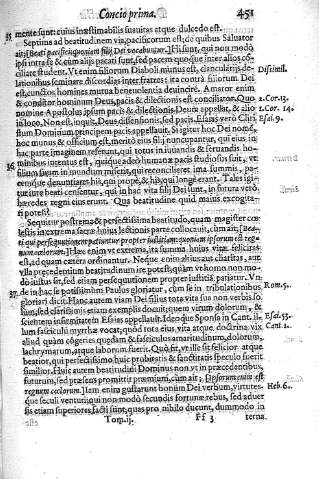 Concio prima. 451
mente sunt: cuius inæstimabilis suauitas atque dulcedo est.
Septima ad beatitudinem via, pacificorum est: de quibus Saluator
ait: Beati pacifici, quoniam filij Dei vocabuntur. Hi sunt, qui non modò
ipsi intra se & cum alijs pacati sunt, sed pacem quoque inter alios con
ciliare student. Vt enim filiorum Diaboli munus est,
nationes seminare & discordias inter fratres: ita contra filiorum Dei
est, cunctos homines mutua beneuolentia deuincire. Amator enim
& conditor hominum Deus, pacis & dilectionis est conciliator. Quo
nomine Apostolus ipsum pacis & dilectionis Deum appellat, & alio
in loco, Non est, inquit, Deus dissensionis, sed pacis. Esaias verò Chri
stum Dominum principem pacis appellauit. Si igitur hoc Dei nomen,
hoc munus & officium est, meritò eius filij nuncupantur, qui eius in
hac parte imaginem referunt, qui totos in iuuandis & seruandis ho-
minibus intenti est, quique adeò humanæ pacis studiosus fuit, vt
filium suum in mundum miserit, qui reconcilieret ima summis, pa-
cemque denuntiaret his, qui propè, & his qui longè erant. Tales igi-
tur iure beati censentur, qui in hac vita filij Dei sunt, in futura verò,
hæredes regni eius erunt. Qua beatitudine quid maius excogita-
ri potest?
Sequitur postrema & perfectissima beatitudo, quam magister cœ-
lestis in extrema serie huius lectionis parte collocauit, cùm ait: Bea-
ti qui persequutionem patiuntur propter iustitiam: quoniam ipsorum est reg-
num cœlorum. Hæc enim vt extrema, ita summa huius vitæ felicitas
est, ad quam cætera ordinantur. Neque enim altius aut charitas, aut
vlla præcedentium beatitudinum ire potest, quàm vt homo non mo-
dò iustus sit, sed etiam persequutionem propter iustitiam patiatur. Vn
de in hac is potissimùm Paulus gloriatur, cum se in tribulationibus
gloriari dicit. Hanc autem viam Dei filius tota vita sua non verbis so-
lùm, sed clarissimis etiam exemplis docuit: quem virum dolorum, &
scientem infirmitatem Esaias appellauit. Ideo que Sponsa in Cant. il-
lum fasciculum myrrhæ vocat; quòd tota eius vita atque doctrina nihil
aliud quàm congeries quædam & fasciculus amaritudinum, dolorum,
lachrymarum, atque laborum fuerit. Quò fit, vt ille sit felicior atque
beatior, qui perfectissimo huic probitatis & sanctitatis speculo fuerit
similior. Huic autem beatitudini Dominus non vt in præcedentibus,
futurum, sed præsens promittit præmium, cùm ait: Ipsorum enim est
regnum cœlorum. Iam enim gustarunt bonum Dei verbum, virtutes
que seculi venturi: qui non modò secundis fortunæ rebus, sed aduer
sis etiam superiores facti sunt, quas pro nihilo ducunt, dummodo in
Tom. ij. Ff 3 terna
35
36
37
Dissimil.
2. Cor. 13.
1. Cor. 14.
Esai. 9.
Rom. 5.
Esai. 53.
Cant. 1.
Heb. 6.